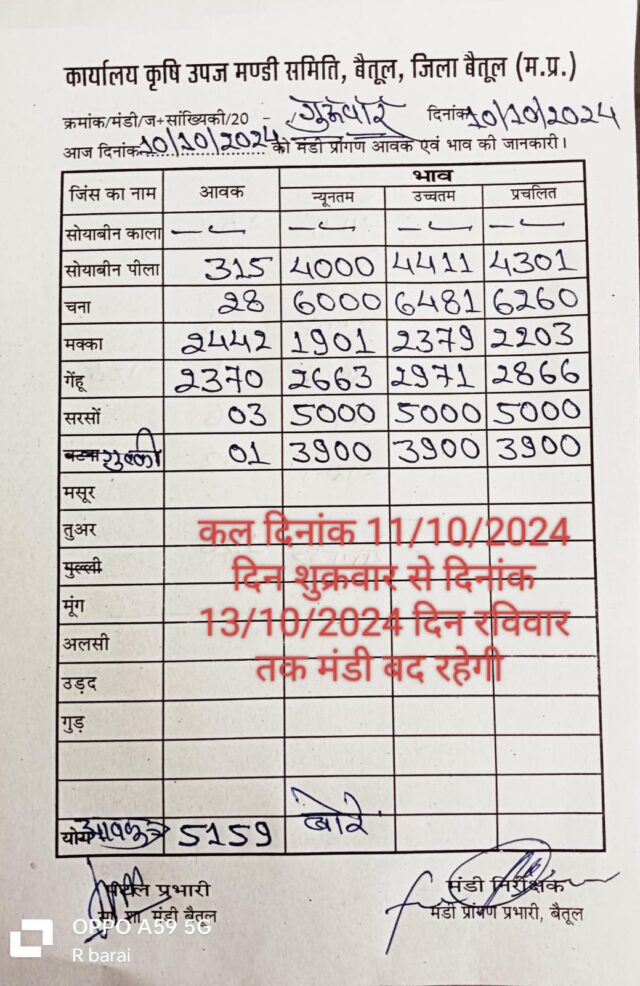 कार्यालय कृषि उपज मण्डी समिति, बैतूल, जिला बैतूल (म.प्र.)
क्रमांक/मंडी/ज+सांख्यिकी/20 - गुरूवार दिनांक 10/10/2024
आज दिनांक 10/10/2024 को मंडी प्रांगण आवक एवं भाव की जानकारी।
जिंस का नाम आवक भाव
न्यूनतम उच्चतम प्रचलित
सोयाबीन काला — — — —
सोयाबीन पीला 315 4000 4411 4301
चना 28 6000 6481 6260
मक्का 2442 1901 2379 2203
गेंहू 2370 2663 2971 2866
सरसों 03 5000 5000 5000
बटना गुल्ली 01 3900 3900 3900
मसूर
तुअर
गुल्ली
मूंग
अलसी
उड़द
गुड़
कल दिनांक 11/10/2024
दिन शुक्रवार से दिनांक
13/10/2024 दिन रविवार
तक मंडी बद रहेगी
योग आवक 5159 बोरे
प्रभारी
मंडी बैतूल
मंडी निरीक्षक
मंडी प्रांगण प्रभारी, बैतूल
OPPO A59 5G
R barai